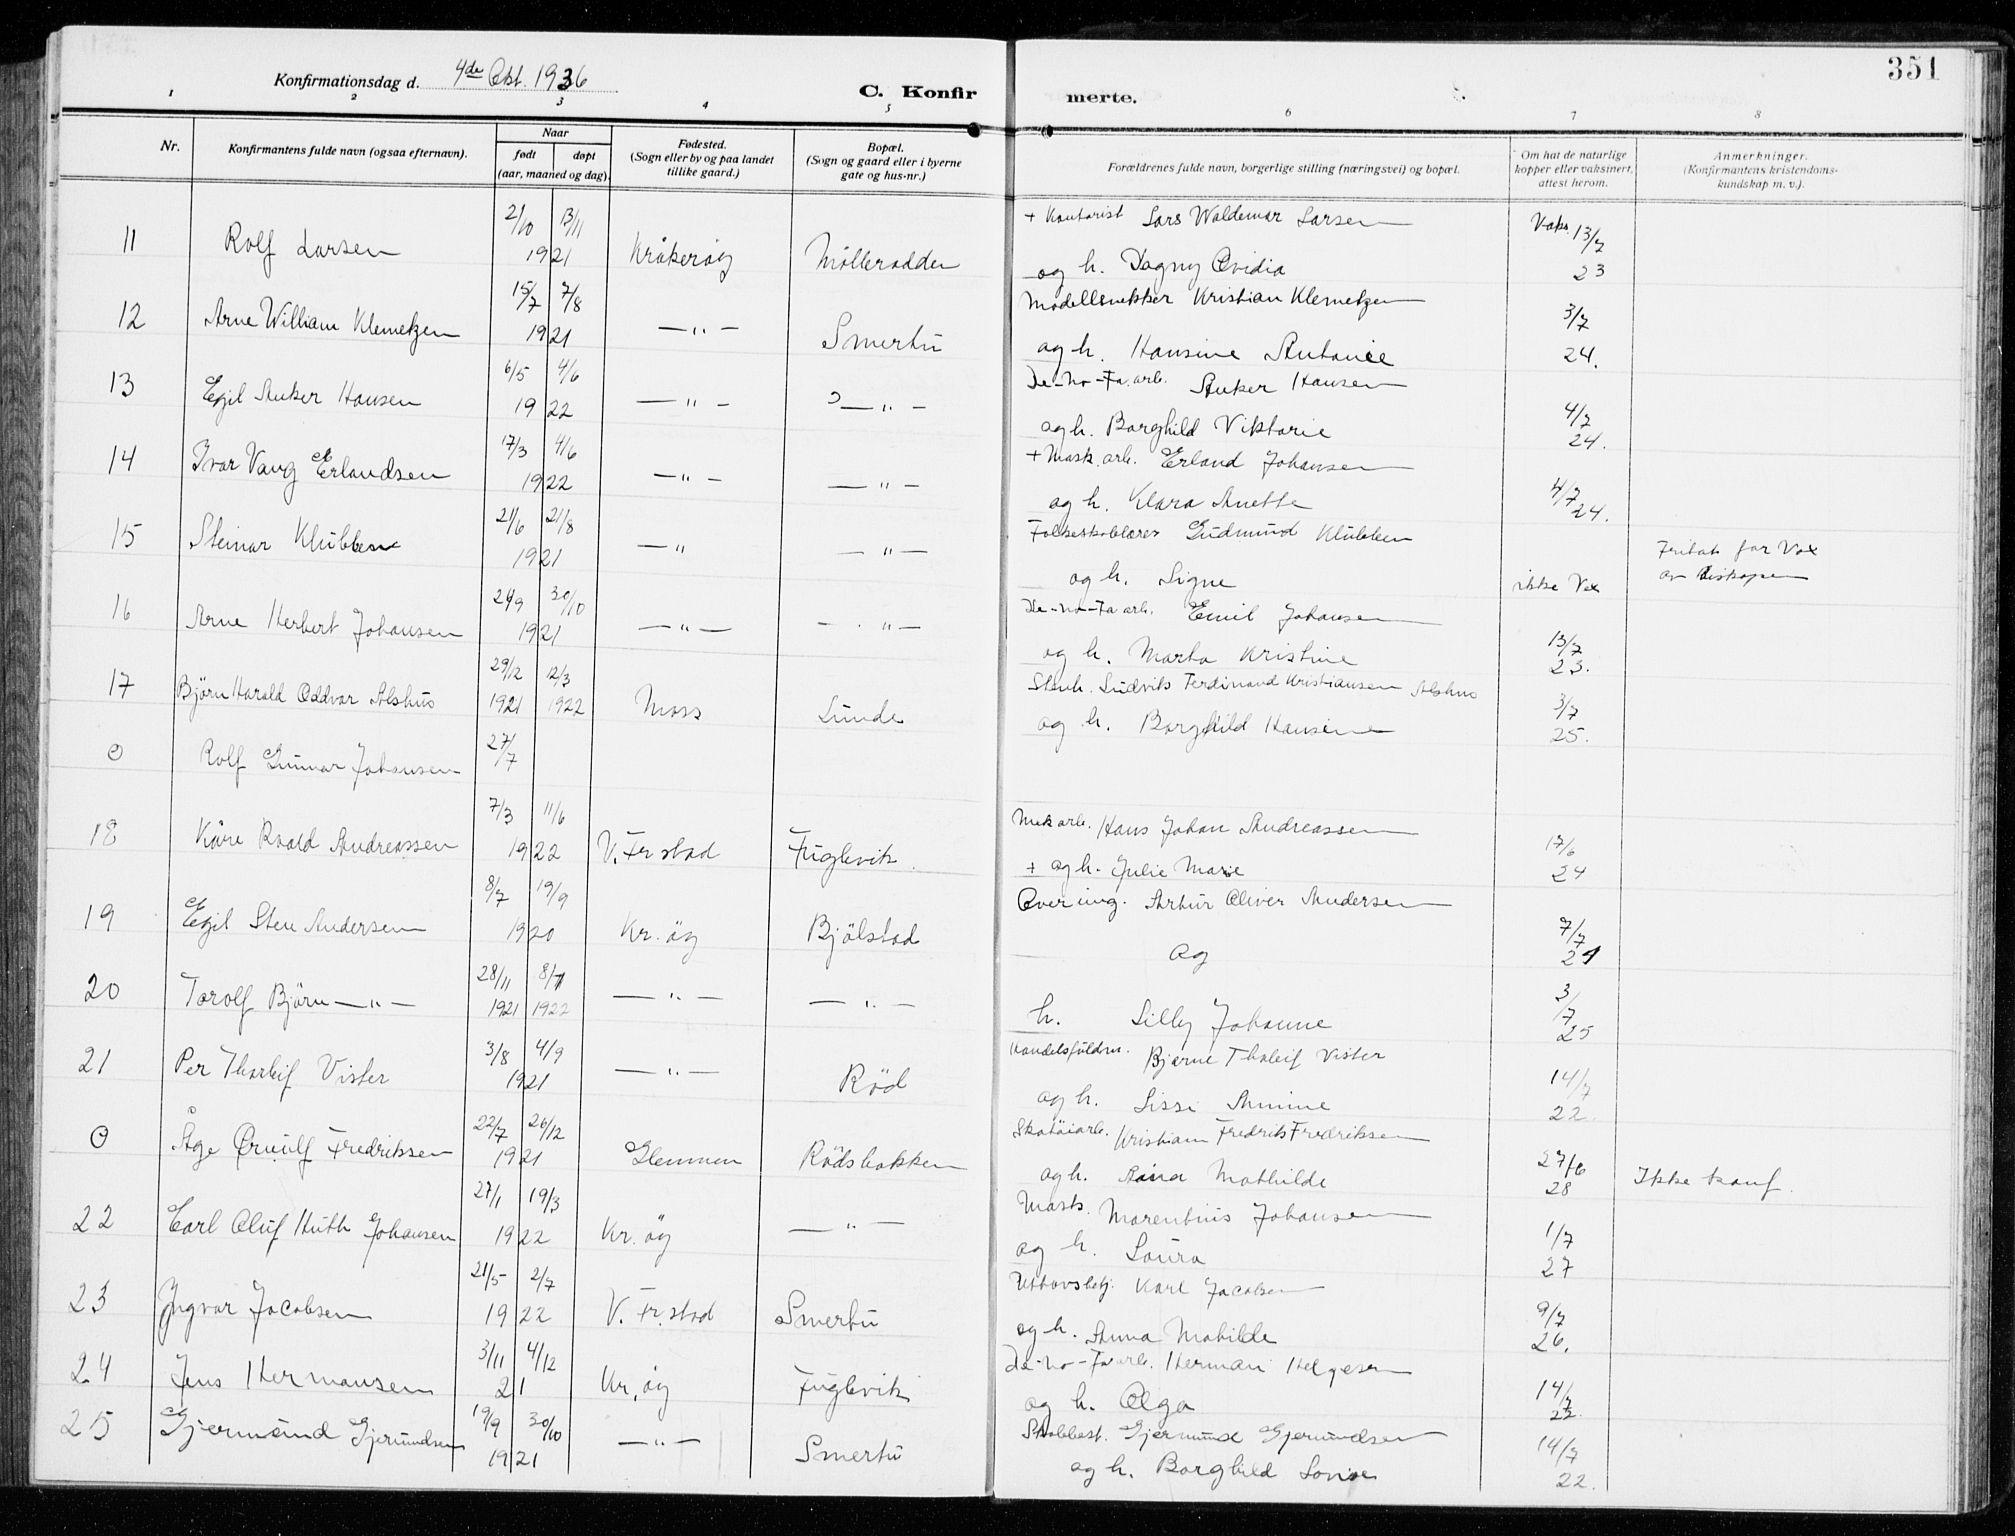 351
Konfirmationsdag d. 4de Okt. 1936
C. Konfirmerte.
1 2 3 4 5 6 7 8
Nr.
Konfirmantens fulde navn (ogsaa efternavn).
Naar
født døpt
(aar, maaned og dag).
Fødested.
(Sogn eller by og paa landet
tillike gaard.)
Bopæl.
(Sogn og gaard eller i byerne
gate og hus-nr.)
Forældrenes fulde navn, borgerlige stilling (næringsvei) og bopæl.
Om hat de naturlige
kopper eller vaksinert,
attest herom.
Anmerkninger.
(Konfirmantens kristendoms-
kundskap m. v.).
11 Rolf Larsen 21/10 13/11 1921 Kråkerøy Mølleradden + Kontorist Lars Waldemar Larsen Vaks. 13/7
og h. Dagny Ovidia 23
12 Arne William Klemetzen 15/7 7/8 1921 —"— Smertu Modellsnekker Kristian Klemetzen 3/7
og h. Hansine Antonie 24.
13 Egil Anker Hansen 6/5 4/6 1922 —"— —"— De-No-Fa. arb. Anker Hansen
og h. Borghild Viktorie 4/7 24.
14 Ivar Vang Erlandsen 17/3 4/6 1922 —"— —"— + Mask. arb. Erland Johansen
og h. Klara Anette 4/7 24.
15 Steinar Klubben 21/6 21/8 1921 —" —"— Folkeskolelærer Gudmund Klubben
og h. Signe ikke Vax Fritat for Vax
av biskopen
16 Arne Herbert Johansen 24/9 30/10 1921 —"— —"— De-no-Fa arb. Emil Johansen
og h. Marta Kristine 13/7 23.
17 Bjørn Harald Oddvar Alshus 29/12 1921 12/3 1922 Moss Lunde Stenh. Ludvik Ferdinand Kristiansen Alshus
og h. Borghild Hansine 3/7 25.
O Rolf Gunnar Johansen 27/7
18 Kåre Roald Andreassen 7/3 11/6 1922 V. Fr.stad Fuglevik. Mek arb. Hans Johan Andreassen
+ og h. Julie Marie 17/6 24
19 Egil Sten Andersen 8/7 19/9 1920 Kr.øy Bjølstad Overing. Artur Oliver Andersen
og 7/7 21
20 Torolf Bjørn —"— 28/11 1921 8/7 1922 —"— —"—
h. Lilly Johanne 3/7 25
21 Per Thorleif Vister 3/8 4/9 1921 —"— Rød Handelsfuldm. Bjarne Tholeif Vister
og h. Lissi Amine 14/7 22.
O Åge Ørnulf Fredriksen 22/7 26/12 1921 Glemmen Rødsbakken Skotøiarb. Kristian Fredrik Fredriksen
og h. Anna Mathilde 27/6 28 Ikke konf.
22 Carl Oluf Huth Johansen 27/1 19/3 1922 Kr.øy —"— Mask. Marentius Johansen
og h. Laura 1/7 27
23 Yngvar Jacobsen 21/5 2/7 1922 V. Fr.stad Smertu Karl Jacobsen
og h. Anna Matilde 9/7 26.
24 Jens Hermansen 3/11 4/12 21 Kr.øy Fuglevik De-no-Fa arb. Herman Helgesen
og h. Olga 14/7 22.
25 Gjermund Gjerundsen 19/9 30/10 1921 —"— Smertu Skolebest. Gjermund Gjerundsen
og h. Borghild Lovise 14/7 22.